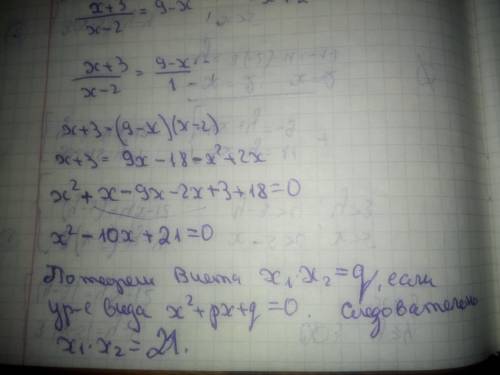 x+3/x-2 = 9-x
x+3/x-2 = 9-x/1
x+3=(9-x)(x-2)
x+3= 9x-18-x²+2x
x²+x-9x-2x+3+18=0
x²-10x+21=0
По теореме Виета x₁·x₂=q, если
ур-е вида x²+px+q=0. Следовательно
x₁·x₂=21.